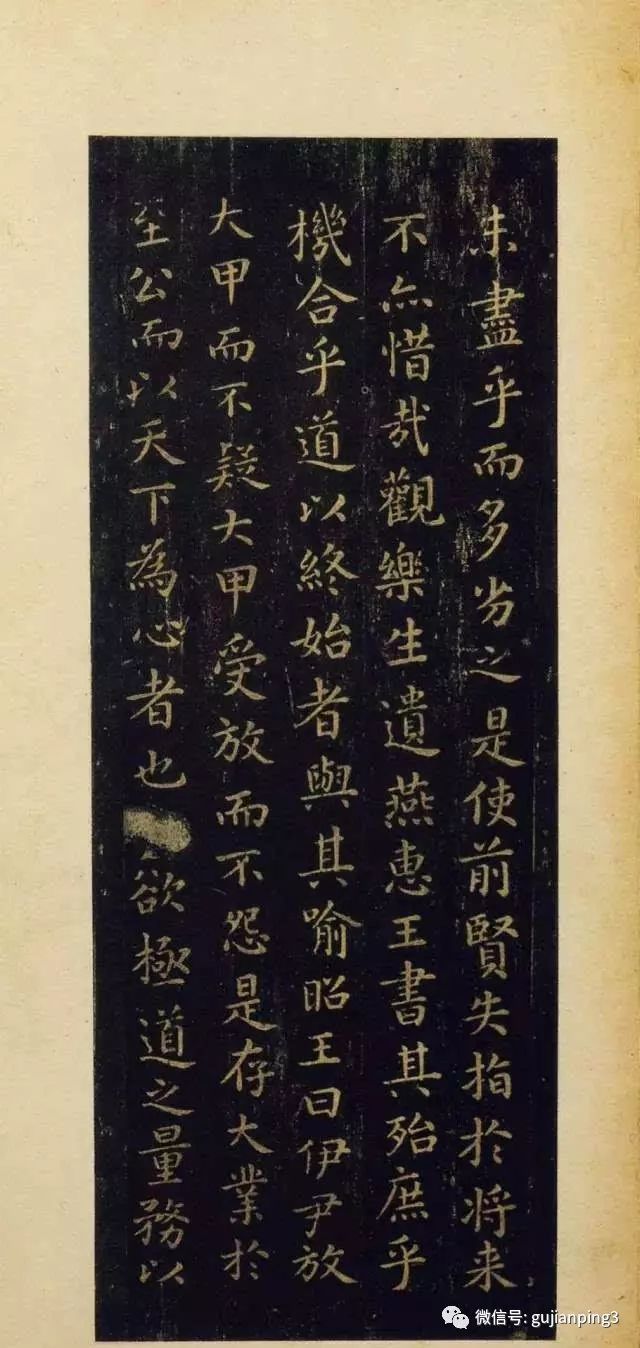 未盡乎而多劣之是使前賢失指於將来
不亦惜哉觀樂生遺燕惠王書其殆庶乎
機合乎道以終始者與其喻昭王曰伊尹放
大甲而不疑大甲受放而不怨是存大業於
至公而以天下為心者也欲極道之量務以
微信号: gujianping3